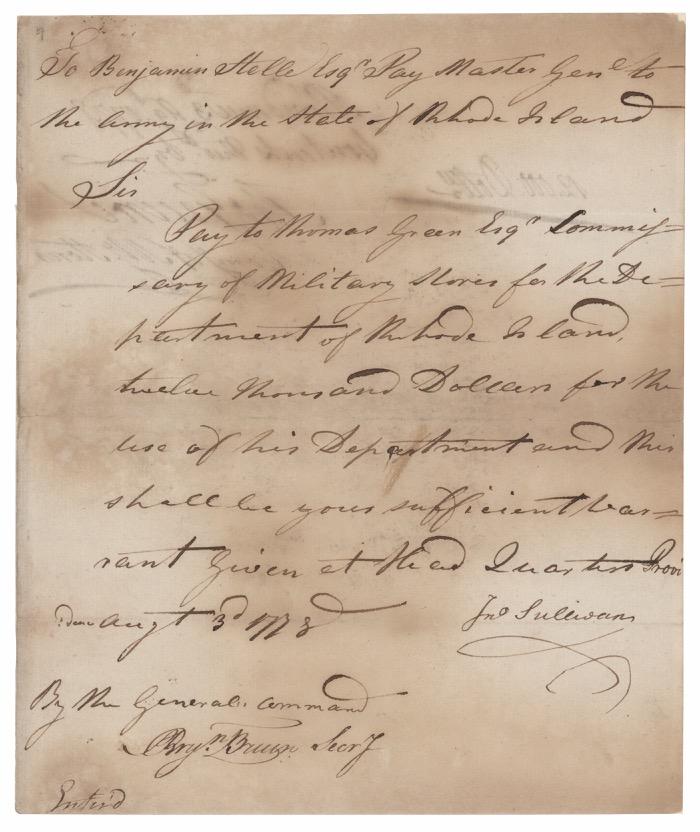 To Benjamin Stelle Esqr Pay Master Genl to
the Army in the State of Rhode Island
Sir
Pay to Thomas Green Esqr Commis=
sary of Military Stores for the De=
partment of Rhode Island,
twelve thousand Dollars for the
use of his Department and this
shall be your sufficient War=
rant Given at Head Quarters Provi
dence Augt 3d 1778
Jno Sullivan
By the Generals command
Secry
Enterd